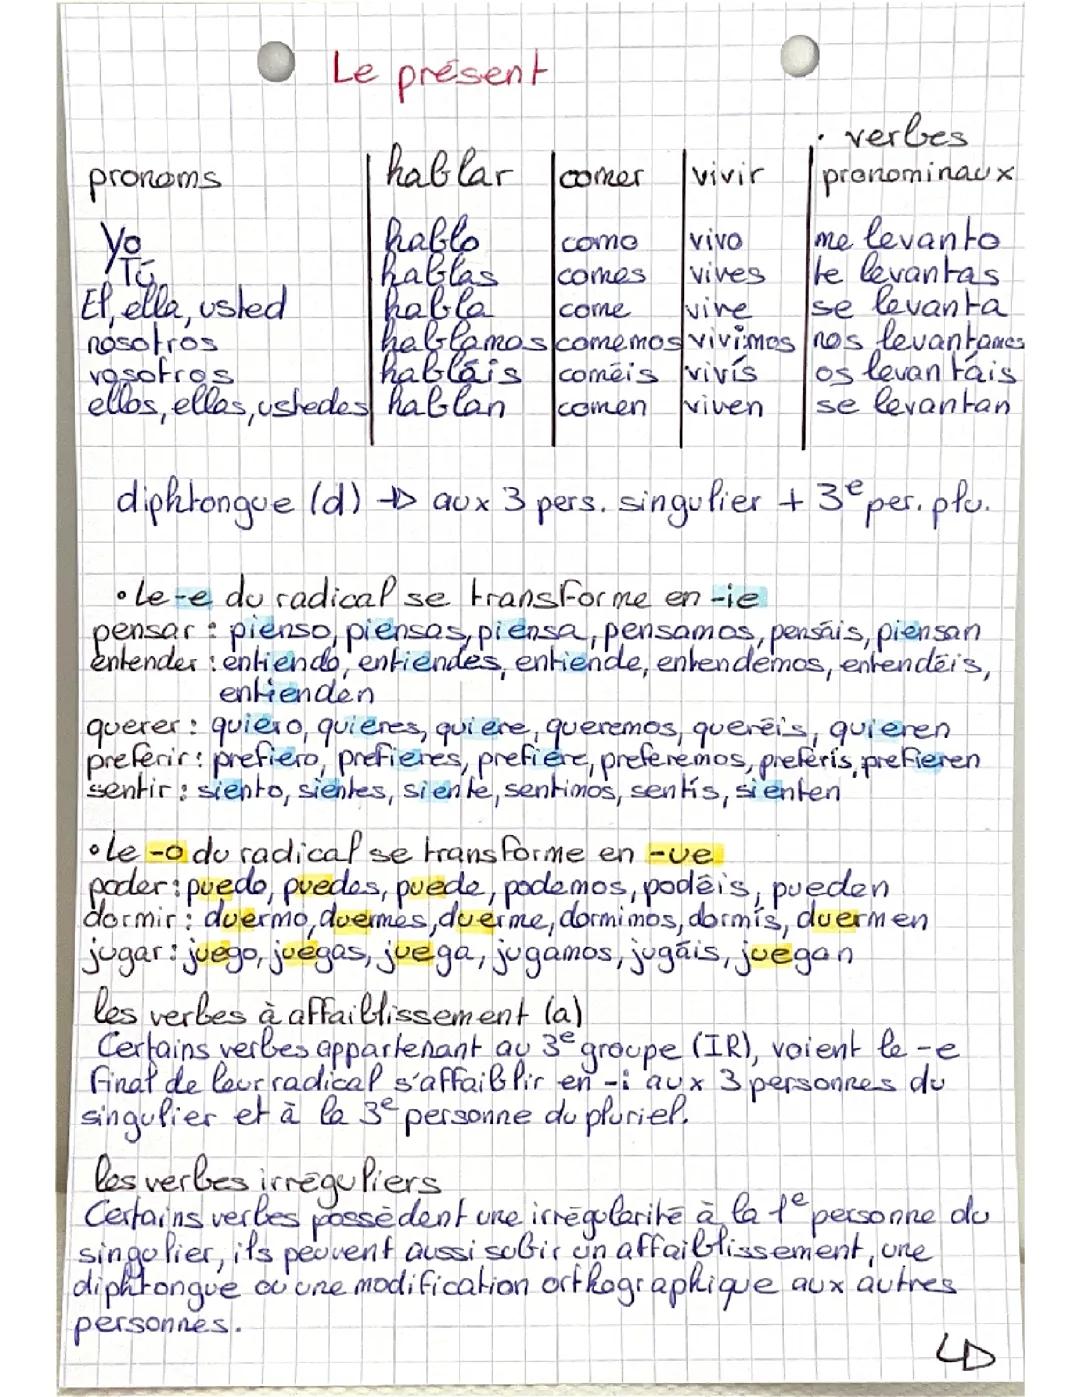 Le présent
pronoms hablar comer vivir · verbes pronominaux
Yo hablo como vivo me levanto
Tú hablas comes vives te levantas
El, ella, usted habla come vive se levanta
nosotros hablamos comemos vivimos nos levantames
vosotros habláis coméis vivís os levantáis
ellos, ellas, ustedes hablan comen viven se levantan
diphtongue (d) → aux 3 pers. singulier + 3e per. plu.
• Le -e du radical se transforme en -ie
pensar : pienso, piensas, piensa, pensamos, pensáis, piensan
entender : entiendo, entiendes, entiende, entendemos, entendéis,
entienden
querer : quiero, quieres, quiere, queremos, queréis, quieren
preferir : prefiero, prefieres, prefiere, preferemos, preferís, prefieren
sentir : siento, sientes, siente, sentimos, sentís, sienten
• Le -o du radical se transforme en -ue
poder : puedo, puedes, puede, podemos, podéis, pueden
dormir : duermo, duermes, duerme, dormimos, dormís, duermen
jugar : juego, juegas, juega, jugamos, jugáis, juegan
les verbes à affaiblissement (a)
Certains verbes appartenant au 3e groupe (IR), voient le -e
final de leur radical s'affaiblir en -i aux 3 personnes du
singulier et à la 3e personne du pluriel.
les verbes irréguliers
Certains verbes possèdent une irrégularité à la 1e personne du
singulier, ils peuvent aussi subir un affaiblissement, une
diphtongue ou une modification orthographique aux autres
personnes.